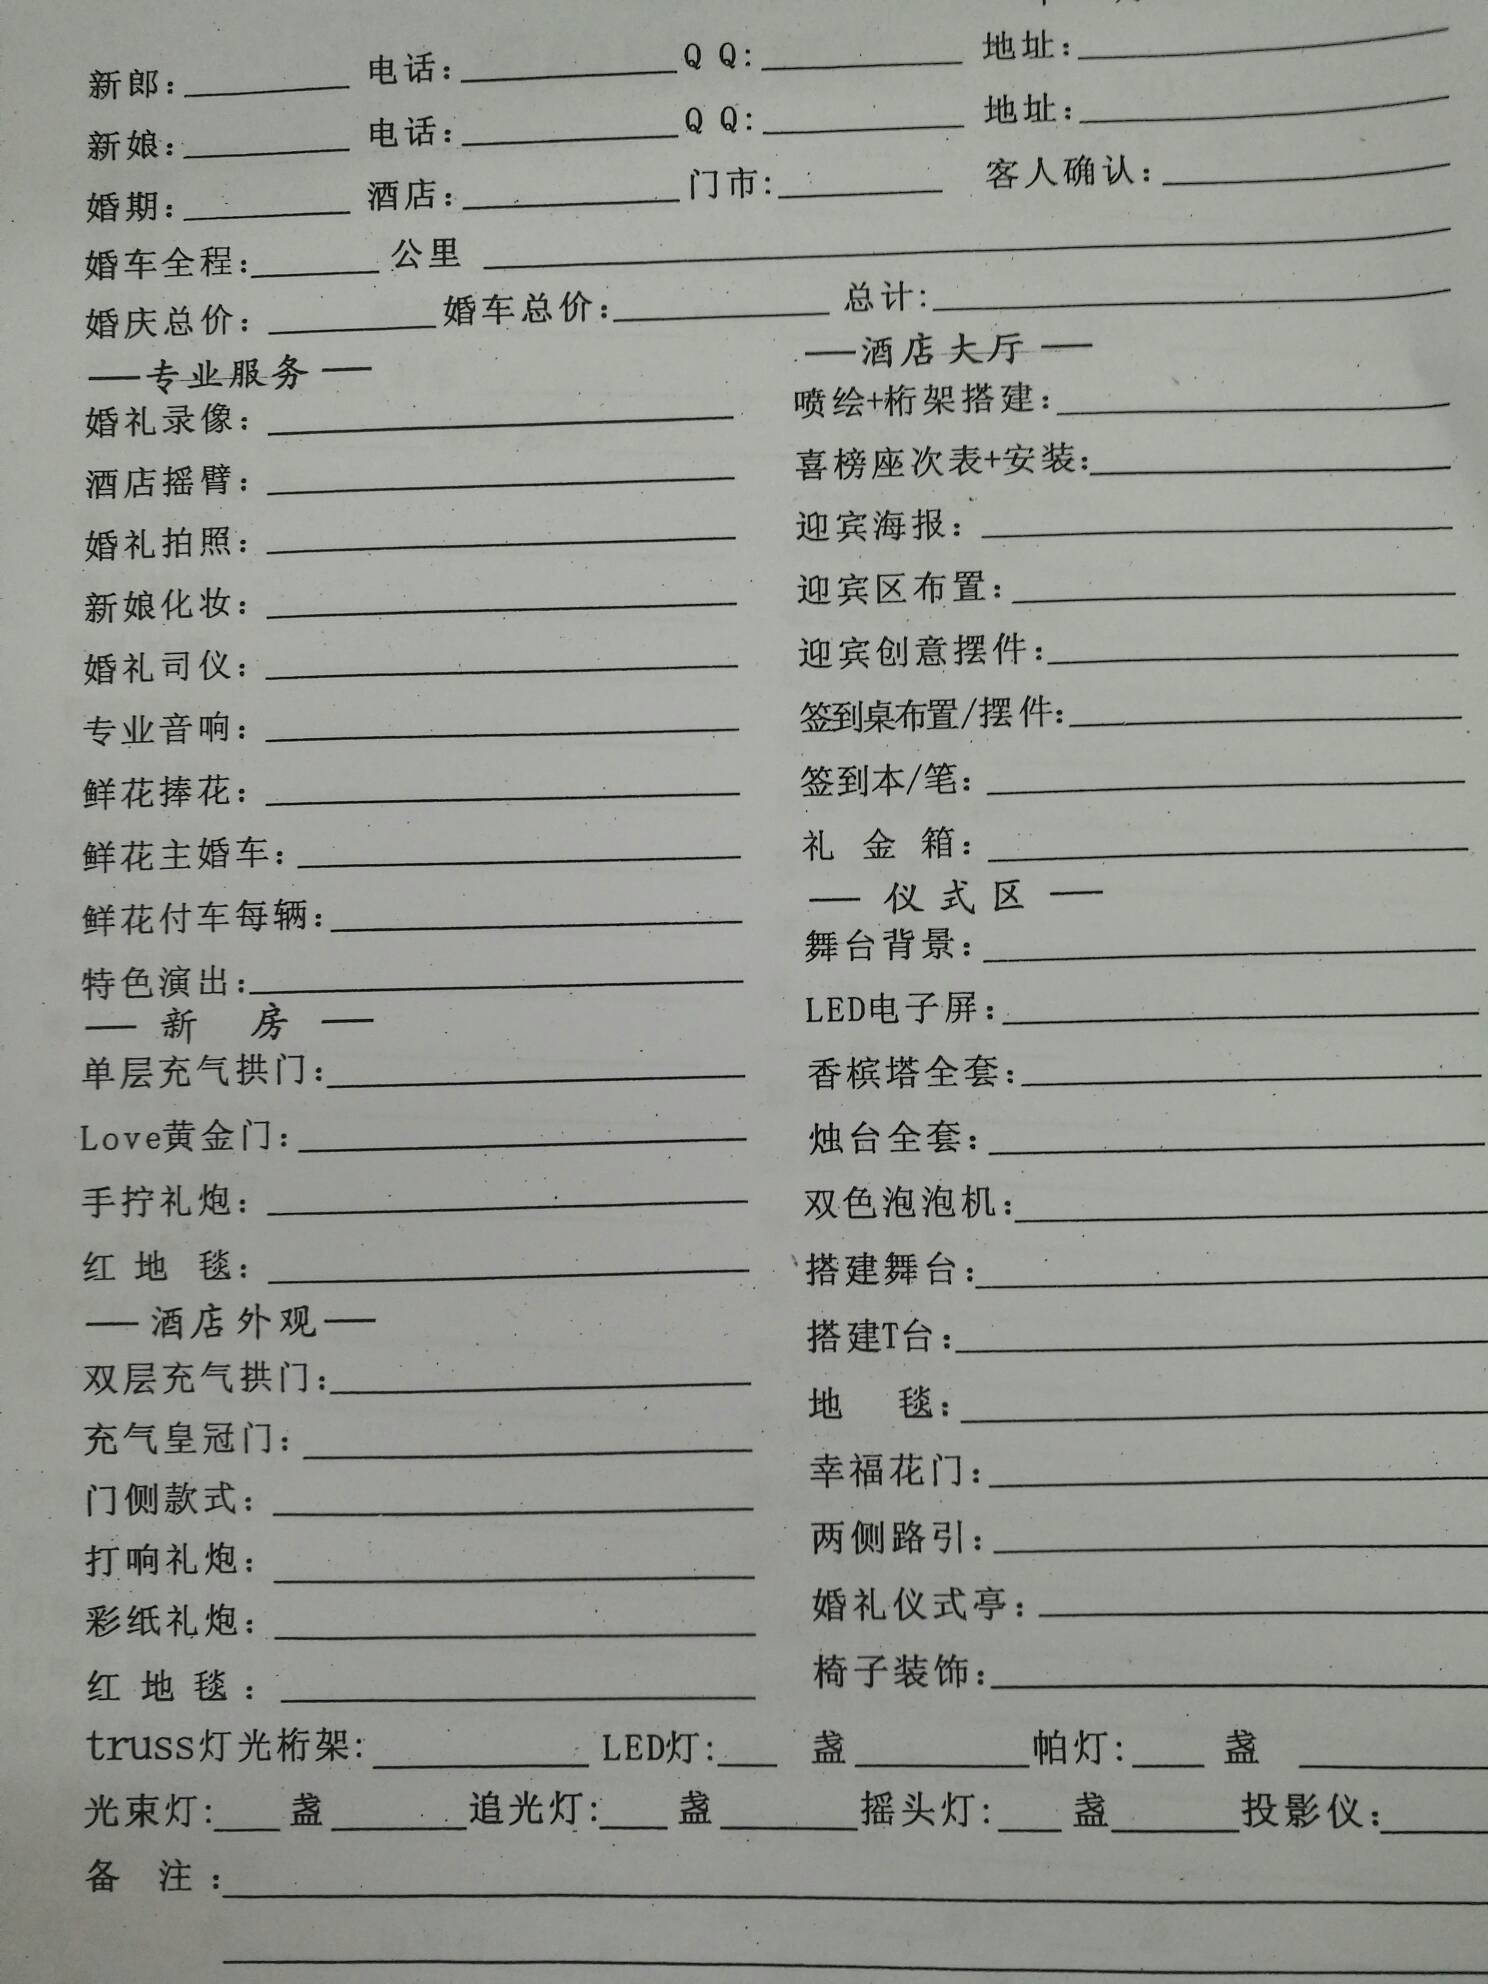 新郎：________ 电话：________ QQ：________ 地址：________
新娘：________ 电话：________ QQ：________ 地址：________
婚期：________ 酒店：________ 门市：________ 客人确认：________
婚车全程：________ 公里 ________
婚庆总价：________ 婚车总价：________ 总计：________
—专业服务—
婚礼录像：________
酒店摇臂：________
婚礼拍照：________
新娘化妆：________
婚礼司仪：________
专业音响：________
鲜花捧花：________
鲜花主婚车：________
鲜花付车每辆：________
特色演出：________
— 新 房 —
单层充气拱门：________
Love黄金门：________
手拧礼炮：________
红地毯：________
—酒店外观—
双层充气拱门：________
充气皇冠门：________
门侧款式：________
打响礼炮：________
彩纸礼炮：________
红地毯：________
—酒店大厅—
喷绘+桁架搭建：________
喜榜座次表+安装：________
迎宾海报：________
迎宾区布置：________
迎宾创意摆件：________
签到桌布置/摆件：________
签到本/笔：________
礼金箱：________
— 仪式区 —
舞台背景：________
LED电子屏：________
香槟塔全套：________
烛台全套：________
双色泡泡机：________
搭建舞台：________
搭建T台：________
地 毯：________
幸福花门：________
两侧路引：________
婚礼仪式亭：________
椅子装饰：________
truss灯光桁架：________ LED灯：____ 盏 ________ 帕灯：____ 盏 ________
光束灯：____ 盏 ________ 追光灯：____ 盏 ________ 摇头灯：____ 盏 ________ 投影仪：________
备 注：________